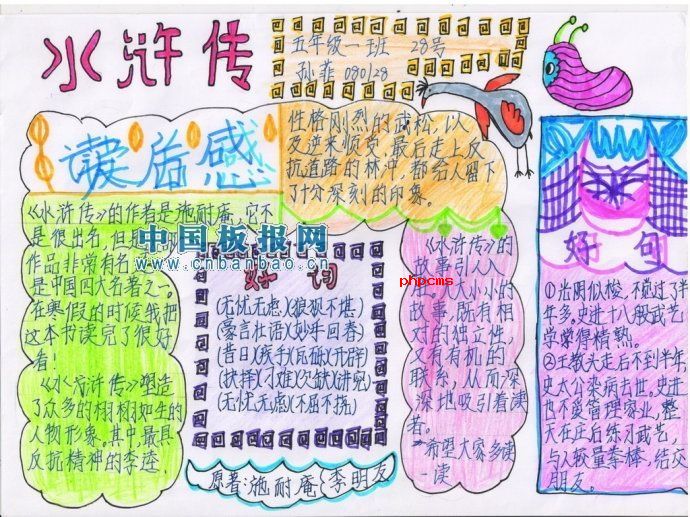 水浒传
五年级一班 28号
孙菲 080128
读后感
《水浒传》的作者是施耐庵，它不
是很出名，但是
作品非常有名
是中国四大名著之一。
在寒假的时候我把
这本书读完了很好
看！
《水浒传》塑造
了众多的栩栩如生的
人物形象。其中，最具
反抗精神的李逵，
性格刚烈的武松，以
及逆来顺受 最后走上反
抗道路的林冲，都给人留下
了十分深刻的印象。
中国板报网
www.cnbanbao.cn
好词
(无忧无虑)(狼狈不堪)
(豪言壮语)(妙手回春)
(无忧无虑)(不屈不挠)
原著:施耐庵 李明友
《水浒传》的
故事引人入
大大小小的
故事，既有相
对的独立性，
又有有机的
联系，从而深
深地吸引着读
者。
希望大家多读
一读
phpcms
好句
①光阴似梭，不觉过了半
年多，史进十八般武艺
学学得精熟。
②王教头走后不到半年，
史太公染病去世。史进
也不爱管理家业，整
天在庄后练习武艺，
与人较量拳棒，结交
朋友。